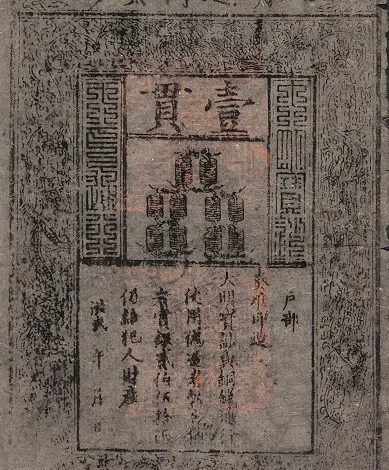 壹貫
大明寶鈔
天下通行
戶部
奏准印造
大明寶鈔與銅錢通行
使用偽造者斬告捕
者賞銀貳佰伍拾兩
仍給犯人財產
洪武 年 月 日